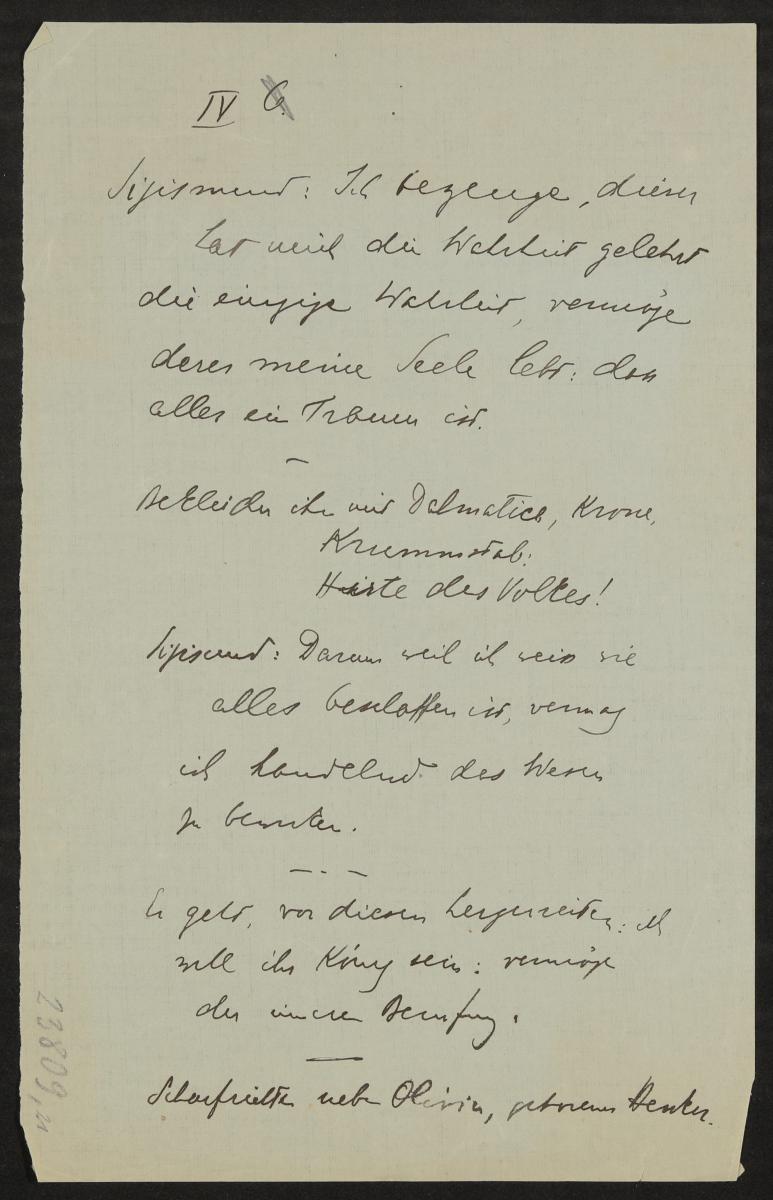 IV 6.
Sigismund: Ich bezeuge, dieser
hat mich die Wahrheit gelehrt
die einzige Wahrheit, vermöge
deren meine Seele lebt: dass
alles ein Traum ist.
–
Bekleiden ihn mit Dalmatica, Krone,
Krummstab:
Hirte des Volkes!
Sigismund: Darum weil ich weiss wie
alles beschaffen ist, vermag
ich handelnd das Wesen
zu bewirken.
– . –
Er geht, vor diesen herzureiten: ich
will ihr König sein: vermöge
der inneren Berufung.
—
Scharfrichter neben Olivier, geborener Henker.
23809,